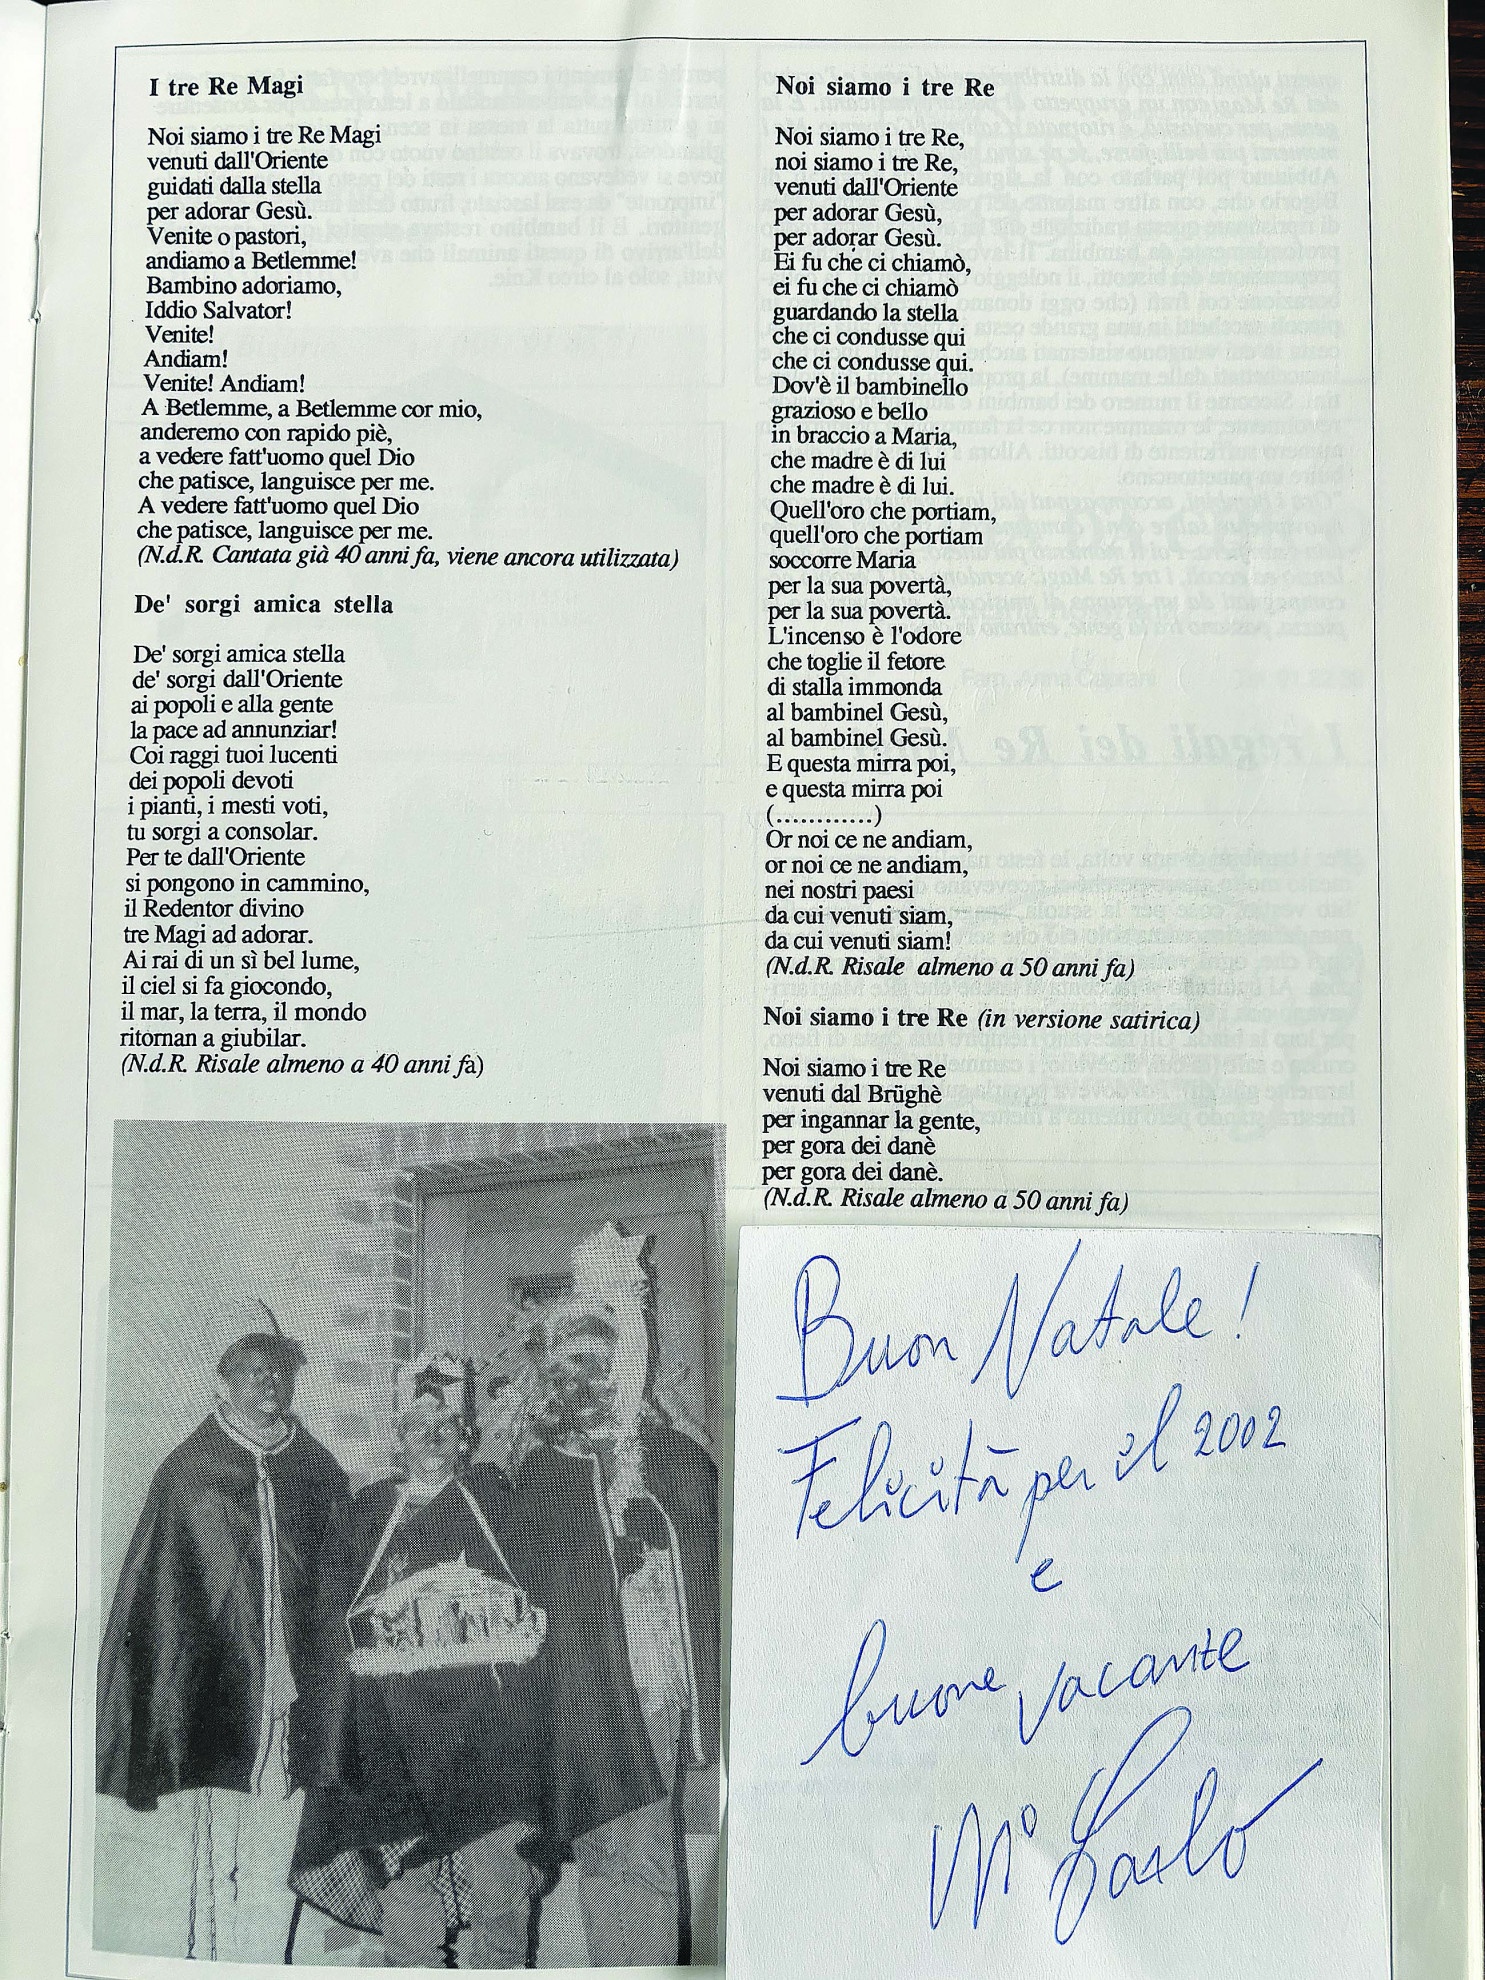 I tre Re Magi
Noi siamo i tre Re Magi
venuti dall'Oriente
guidati dalla stella
per adorar Gesù.
Venite o pastori,
andiamo a Betlemme!
Bambino adoriamo,
Iddio Salvator!
Venite!
Andiam!
Venite! Andiam!
A Betlemme, a Betlemme cor mio,
anderemo con rapido piè,
a vedere fatt'uomo quel Dio
che patisce, languisce per me.
A vedere fatt'uomo quel Dio
che patisce, languisce per me.
(N.d.R. Cantata già 40 anni fa, viene ancora utilizzata)
De' sorgi amica stella
De' sorgi amica stella
de' sorgi dall'Oriente
ai popoli e alla gente
la pace ad annunziar!
Coi raggi tuoi lucenti
dei popoli devoti
i pianti, i mesti voti,
tu sorgi a consolar.
Per te dall'Oriente
si pongono in cammino,
il Redentor divino
tre Magi ad adorar.
Ai rai di un sì bel lume,
il ciel si fa giocondo,
il mar, la terra, il mondo
ritornan a giubilar.
(N.d.R. Risale almeno a 40 anni fà)
Noi siamo i tre Re
Noi siamo i tre Re,
noi siamo i tre Re,
venuti dall'Oriente
per adorar Gesù,
per adorar Gesù.
Ei fu che ci chiamò,
ei fu che ci chiamò
guardando la stella
che ci condusse qui
che ci condusse qui.
Dov'è il bambinello
grazioso e bello
in braccio a Maria,
che madre è di lui
che madre è di lui.
Quell'oro che portiam,
quell'oro che portiam
soccorre Maria
per la sua povertà,
per la sua povertà.
L'incenso è l'odore
che toglie il fetore
di stalla immonda
al bambinel Gesù,
al bambinel Gesù.
E questa mirra poi,
e questa mirra poi
(............)
Or noi ce ne andiam,
or noi ce ne andiam,
nei nostri paesi
da cui venuti siam,
da cui venuti siam!
(N.d.R. Risale almeno a 50 anni fa)
Noi siamo i tre Re (in versione satirica)
Noi siamo i tre Re
venuti dal Brüghè
per ingannar la gente,
per gora dei danè
per gora dei danè.
(N.d.R. Risale almeno a 50 anni fa)
Buon Natale!
Felicità per il 2002
e
buone vacanze
M° Carlo